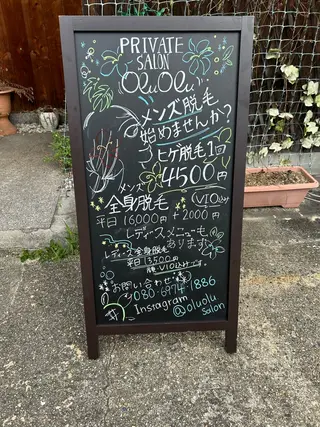 PRIVATE
SALON
OluOlu
メンズ脱毛
始めませんか?
ヒゲ脱毛1回
4500円
メンズ
全身脱毛 (VIO込)
平日 16000円 + 2000円
レディースメニューも
あります
レディース全身脱毛
平日13500円
顔、VIO込みです。
お問い合わせ
080-6974-1886
Instagram
@oluolu
salon